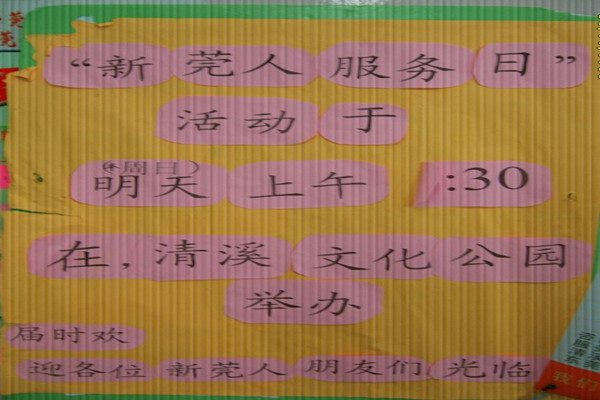 “新莞人服务日”
活动于
（本周日）
明天上午 :30
在，清溪文化公园
举办
届时欢
迎各位新莞人朋友们光临
我们